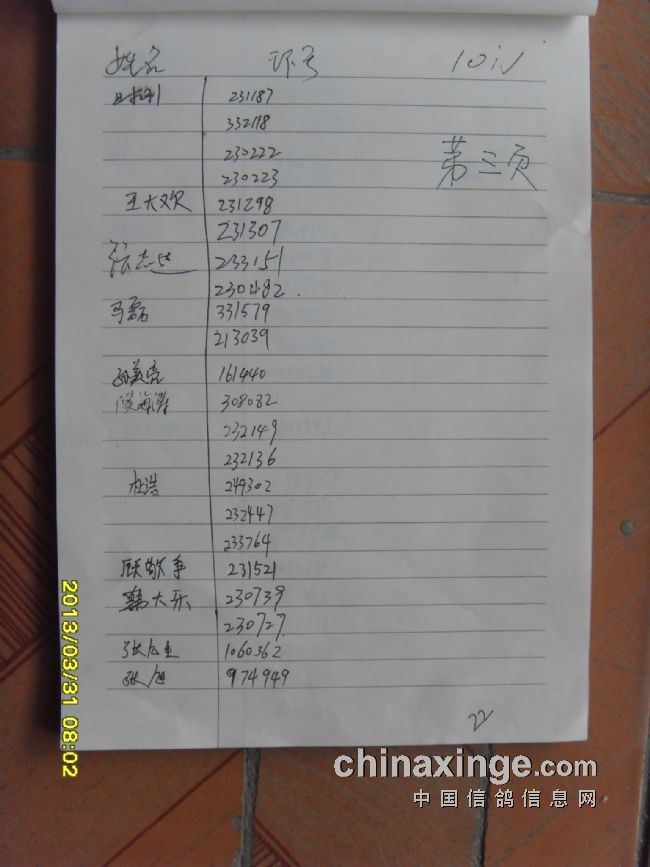 姓名 环号 10
231187
332118
230222
第三页
230223
王大欢 231298
231307
张志 233151
230482
马磊 331579
213039
孙美亮 161440
308082
232149
232136
杜浩 249302
232447
233764
顾敬 231521
韩大乐 230739
230727
张 1060362
张旭 974949
22
2013/03/31 08:02
chinaxinge.com
中国信鸽信息网